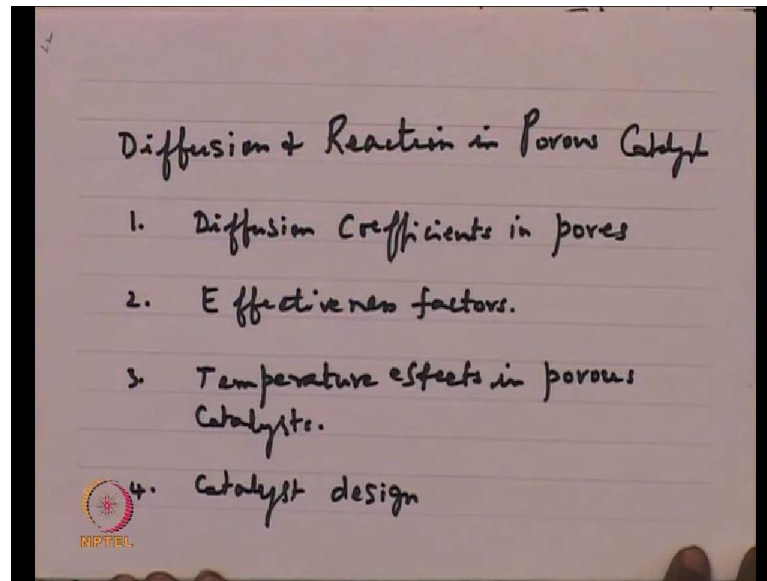 Diffusion & Reaction in Porous Catalyst
1. Diffusion Coefficients in pores
2. Effectiveness factors.
3. Temperature effects in porous
Catalysts.
4. Catalyst design
NPTEL